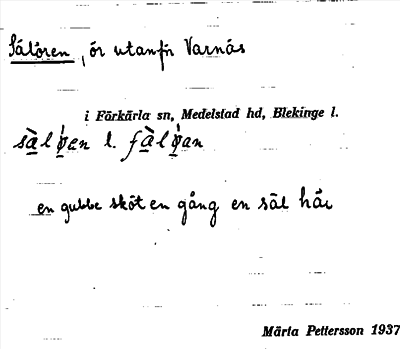 Sälören, ör utanför Varnäs
i Förkärla sn, Medelstad hd, Blekinge l.
sä̀lø̀en l. fä̀lø̀an
en gubbe sköt en gång en säl här
Märta Pettersson 1937